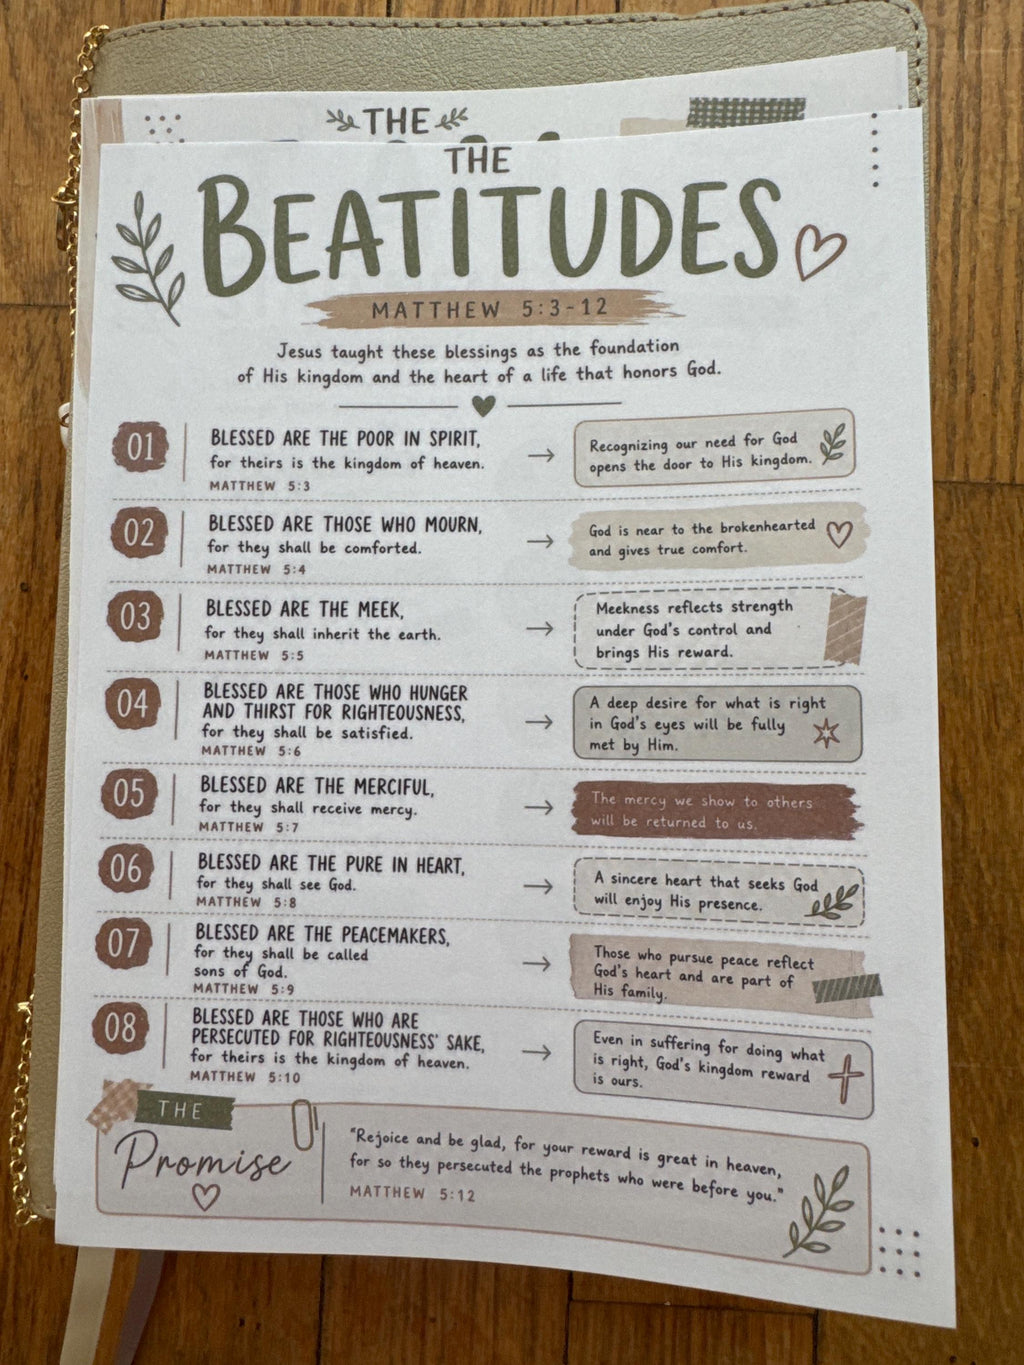 THE
THE
BEATITUDES
MATTHEW 5:3-12
Jesus taught these blessings as the foundation
of His kingdom and the heart of a life that honors God.
01
BLESSED ARE THE POOR IN SPIRIT,
for theirs is the kingdom of heaven.
MATTHEW 5:3
Recognizing our need for God
opens the door to His kingdom.
02
BLESSED ARE THOSE WHO MOURN,
for they shall be comforted.
MATTHEW 5:4
God is near to the brokenhearted
and gives true comfort.
03
BLESSED ARE THE MEEK,
for they shall inherit the earth.
MATTHEW 5:5
Meekness reflects strength
under God's control and
brings His reward.
04
BLESSED ARE THOSE WHO HUNGER
AND THIRST FOR RIGHTEOUSNESS,
for they shall be satisfied.
MATTHEW 5:6
A deep desire for what is right
in God's eyes will be fully
met by Him.
05
BLESSED ARE THE MERCIFUL,
for they shall receive mercy.
MATTHEW 5:7
The mercy we show to others
will be returned to us.
06
BLESSED ARE THE PURE IN HEART,
for they shall see God.
MATTHEW 5:8
A sincere heart that seeks God
will enjoy His presence.
07
BLESSED ARE THE PEACEMAKERS,
for they shall be called
sons of God.
MATTHEW 5:9
Those who pursue peace reflect
God's heart and are part of
His family.
08
BLESSED ARE THOSE WHO ARE
PERSECUTED FOR RIGHTEOUSNESS' SAKE,
for theirs is the kingdom of heaven.
MATTHEW 5:10
Even in suffering for doing what
is right, God's kingdom reward
is ours.
THE
Promise
"Rejoice and be glad, for your reward is great in heaven,
for so they persecuted the prophets who were before you."
MATTHEW 5:12